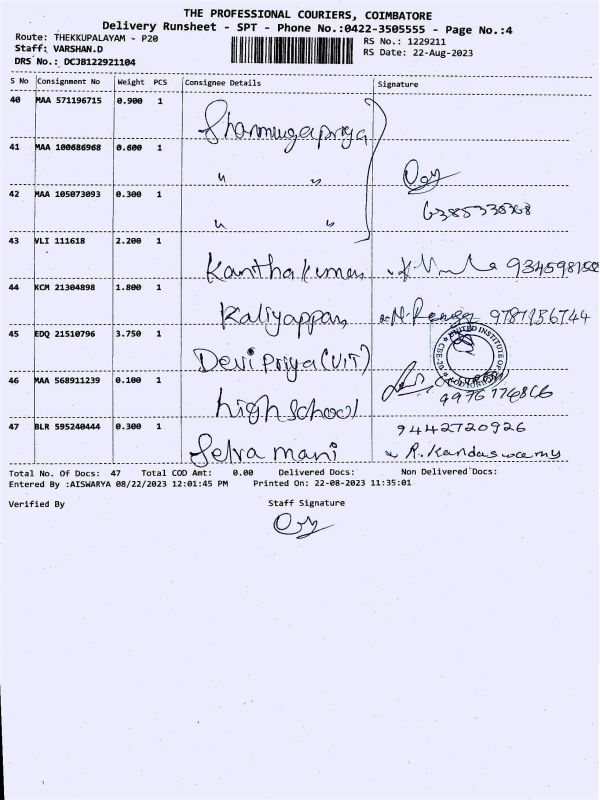 THE PROFESSIONAL COURIERS, COIMBATORE
Delivery Runsheet - SPT - Phone No.:0422-3505555 - Page No.:4
Route: THEKKUPALAYAM - P20
RS No.: 1229211
Staff: VARSHAN.D
RS Date: 22-Aug-2023
DRS No.: DCJB122921104
S No Consignment No Weight PCS Consignee Details Signature
40 MAA 571196715 0.900 1 Shanmugapriya
41 MAA 100686968 0.600 1 " "
42 MAA 105073093 0.300 1 " "
43 VLI 111618 2.200 1 Kanthakumar
44 KCM 21304898 1.800 1 Kaliyappan 9787136744
45 EDQ 21510796 3.750 1 Devipriya(VIT)
46 MAA 568911239 0.100 1 high school
9442720926
47 BLR 595240444 0.300 1 Selva mani R. Kandaswamy
Total No. Of Docs: 47 Total COD Amt: 0.00 Delivered Docs: Non Delivered Docs:
Entered By :AISWARYA 08/22/2023 12:01:45 PM Printed On: 22-08-2023 11:35:01
Verified By Staff Signature